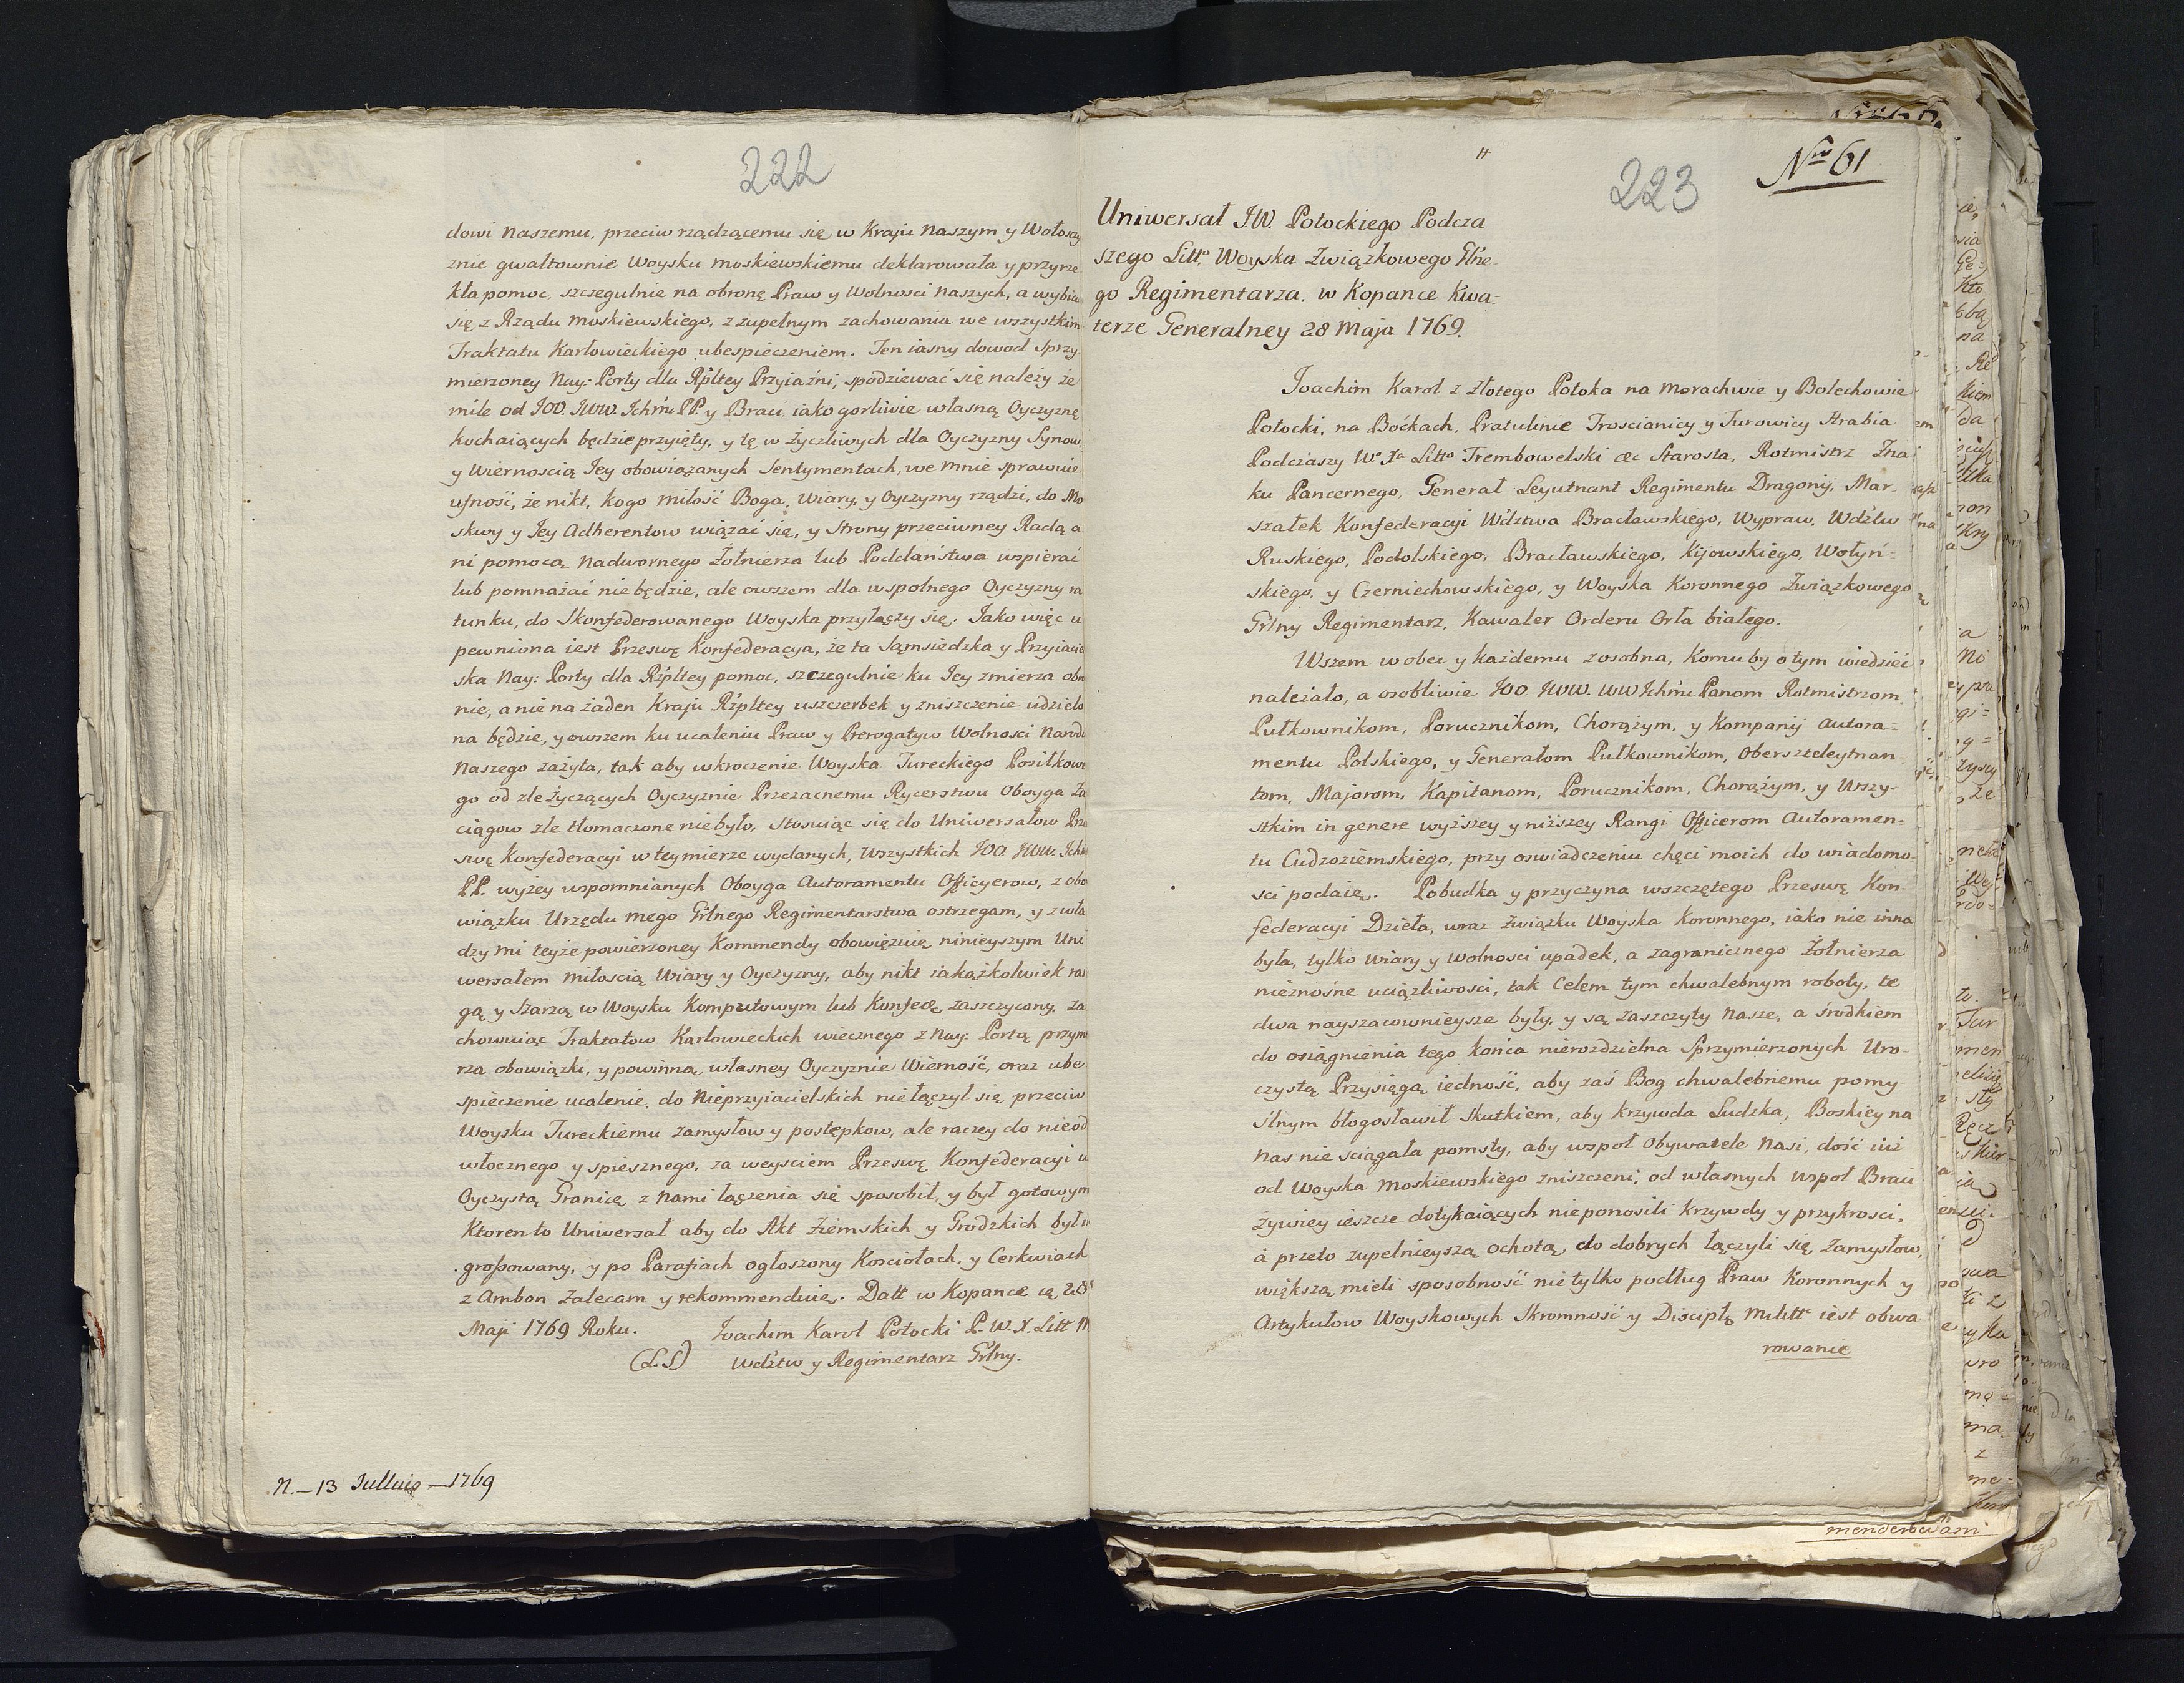 222
dowi Naszemu, przeciw rządzącemu się w Kraju Naszym y Wołoszy
znie gwałtownie Woysku Moskiewskiemu deklarowała y przyrze
kła pomoc, szczegulnie na obronę Praw y Wolnosci Naszych, a wybia
się z Rządu Moskiewskiego, z zupełnym zachowania we wszystkim
Traktatu Karłowieckiego ubespieczeniem. Ten iasny dowod Sprzy-
mierzoney Nay: Porty dla Rzpltey Przyiaźni, spodziewać się należy że
mile od JOO. JWW. Ichmc PP. y Braci, iako gorliwie własną Oyczyznę
kochaiących będzie przyięty, y tę w życzliwych dla Oyczyzny Synow,
y Wiernoscią Jey obowiązanych Sentymentach, we mnie sprawuie
ufność, że nikt, kogo Miłość Boga, Wiary, y Oyczyzny rządzi, do Mo
skwy y Jey Adherentow wiązać się, y Strony przeciwney Radą a
ni pomocą Nadwornego Żołnierza lub Poddaństwa wspierać
lub pomnażać nie będzie, ale owszem dla wspolnego Oyczyzny ra
tunku, do Skonfederowanego Woyska przyłączy się. Jako więc u
pewniona iest Przeswę Konfederacya, że ta Sąmsiedzka y Przyiacie
ska Nay: Porty dla Rzpltey pomoc, szczegulnie ku Jey zmierza obro
nie, a nie na żaden Kraju Rzpltey uszczerbek y zniszczenie udzielo
na będzie, y owszem ku ucaleniu Praw y Prerogatyw Wolnosci Narodu
Naszego zażyta, tak aby wkroczenie Woyska Tureckiego Posiłkowe
go od zle życzących Oyczyznie Przezacnemu Rycerstwu Oboyga Za
ciągow zle tłomaczone nie było, stosuiąc się do Uniwersałow Prze
swę Konfederacyi w tey mierze wydanych, wszystkich JOO. JWW. Ichm
PP. wyżey wspomnianych Oboyga Autoramentu Officyerow, z obo
wiązku Urzędu mego Grlnego Regimentarstwa ostrzegam, y z wła
dzy mi teyże powierzoney Kommendy obowięzuię ninieyszym Uni
wersałem miłoscią Wiary y Oyczyzny, aby nikt iakążkolwiek ran
gą y Szarżą w Woysku Komputowym lub Konfede, zaszczycony, za
chowuiąc Traktatow Karłowieckich wiecznego z Nay: Portą przymi
rza obowiązki, y powinną własney Oyczyznie Wierność, oraz ube
spieczenie ucalenie, do Nieprzyiacielskich nie łączył się przeciw
Woysku Tureckiemu zamysłow y postępkow, ale raczey do nieod
włocznego y spiesznego, za weysciem Przeswę Konfederacyi w
Oyczystą Granicę z Nami łączenia się sposobił, y był gotowym
Ktorento Uniwersał aby do Akt Ziemskich y Grodzkich był in
grossowany, y po Parafiach ogłoszony Kosciołach, y Cerkwiach
z Ambon Zalecam y rekommenduię. Datt w Kopance ię 28
Maji 1769 Roku. Joachim Karol Potocki P. W. X. Litt M
(L.S) Wdztw y Regimentarz Grlny.
N. – 13 Jullius – 1769
223
Nro 61
Uniwersał JW. Potockiego Podcza
szego Litto Woyska Związkowego Glne-
go Regimentarza, w Kopance Kwa=
terze Generalney 28 Maja 1769.
Joachim Karol z Złotego Potoka na Morachwie y Bolechowie
Potocki, na Boćkach, Pratulinie Troscianicy y Turowicy Hrabia
Podczaszy Wo Xa Litto Trembowelski &c Starosta, Rotmistrz Zna
ku Pancernego, Generał Leyutnant Regimentu Dragonij, Mar-
szałek Konfederacyi Wdztwa Bracławskiego, Wypraw, Wdztw
Ruskiego, Podolskiego, Bracławskiego, Kijowskiego, Wołyń-
skiego, y Czerniechowskiego, y Woyska Koronnego Związkowego
Grlny Regimentarz, Kawaler Orderu Orła białego.
Wszem wobec y każdemu zosobna, Komu by o tym wiedzieć
należało, a osobliwie JOO. JWW. WW Ichmc Panom Rotmistrzom
Pułkownikom, Porucznikom, Chorążym, y Kompanij Autora-
mentu Polskiego, y Generałom Pułkownikom, Oberszteleytnan-
tom, Majorom, Kapitanom, Porucznikom, Chorążym, y Wszy-
stkim in genere wyższey y niższey Rangi Officerom Autoramen-
tu Cudzoziemskiego, przy oswiadczeniu chęci moich do wiadomo-
sci podaię. Pobudka y przyczyna wszczętego Przeswę Kon-
federacyi Dzieła, wraz Związku Woyska Koronnego, iako nie inna
była, tylko Wiary y Wolnosci upadek, a zagranicznego Żołnierza
nieznośne uciążliwosci, tak Celem tym chwalebnym roboty, te
dwa nayszacownieysze były, y są Zaszczyty Nasze, a środkiem
do osiągnienia tego końca nierozdzielna Sprzymierzonych Uro-
czystą Przysięgą iedność, aby zaś Bog chwalebniemu pomy-
slnym błogosławił skutkiem, aby krzywda Ludzka, Boskiey na
Nas nie sciągała pomsty, aby wspoł Obywatele Nasi, dość iuż
od Woyska Moskiewskiego zniszczeni, od własnych wspoł Braci
żywiey ieszcze dotykaiących nie ponosili krzywdy y przykrosci,
à przeto zupełnieyszą ochotą, do dobrych łączyli się Zamysłow,
większą mieli sposobność nie tylko podług Praw Koronnych y
Artykułow Woyskowych Skromność y Discipl Militt iest obwa
rowanie